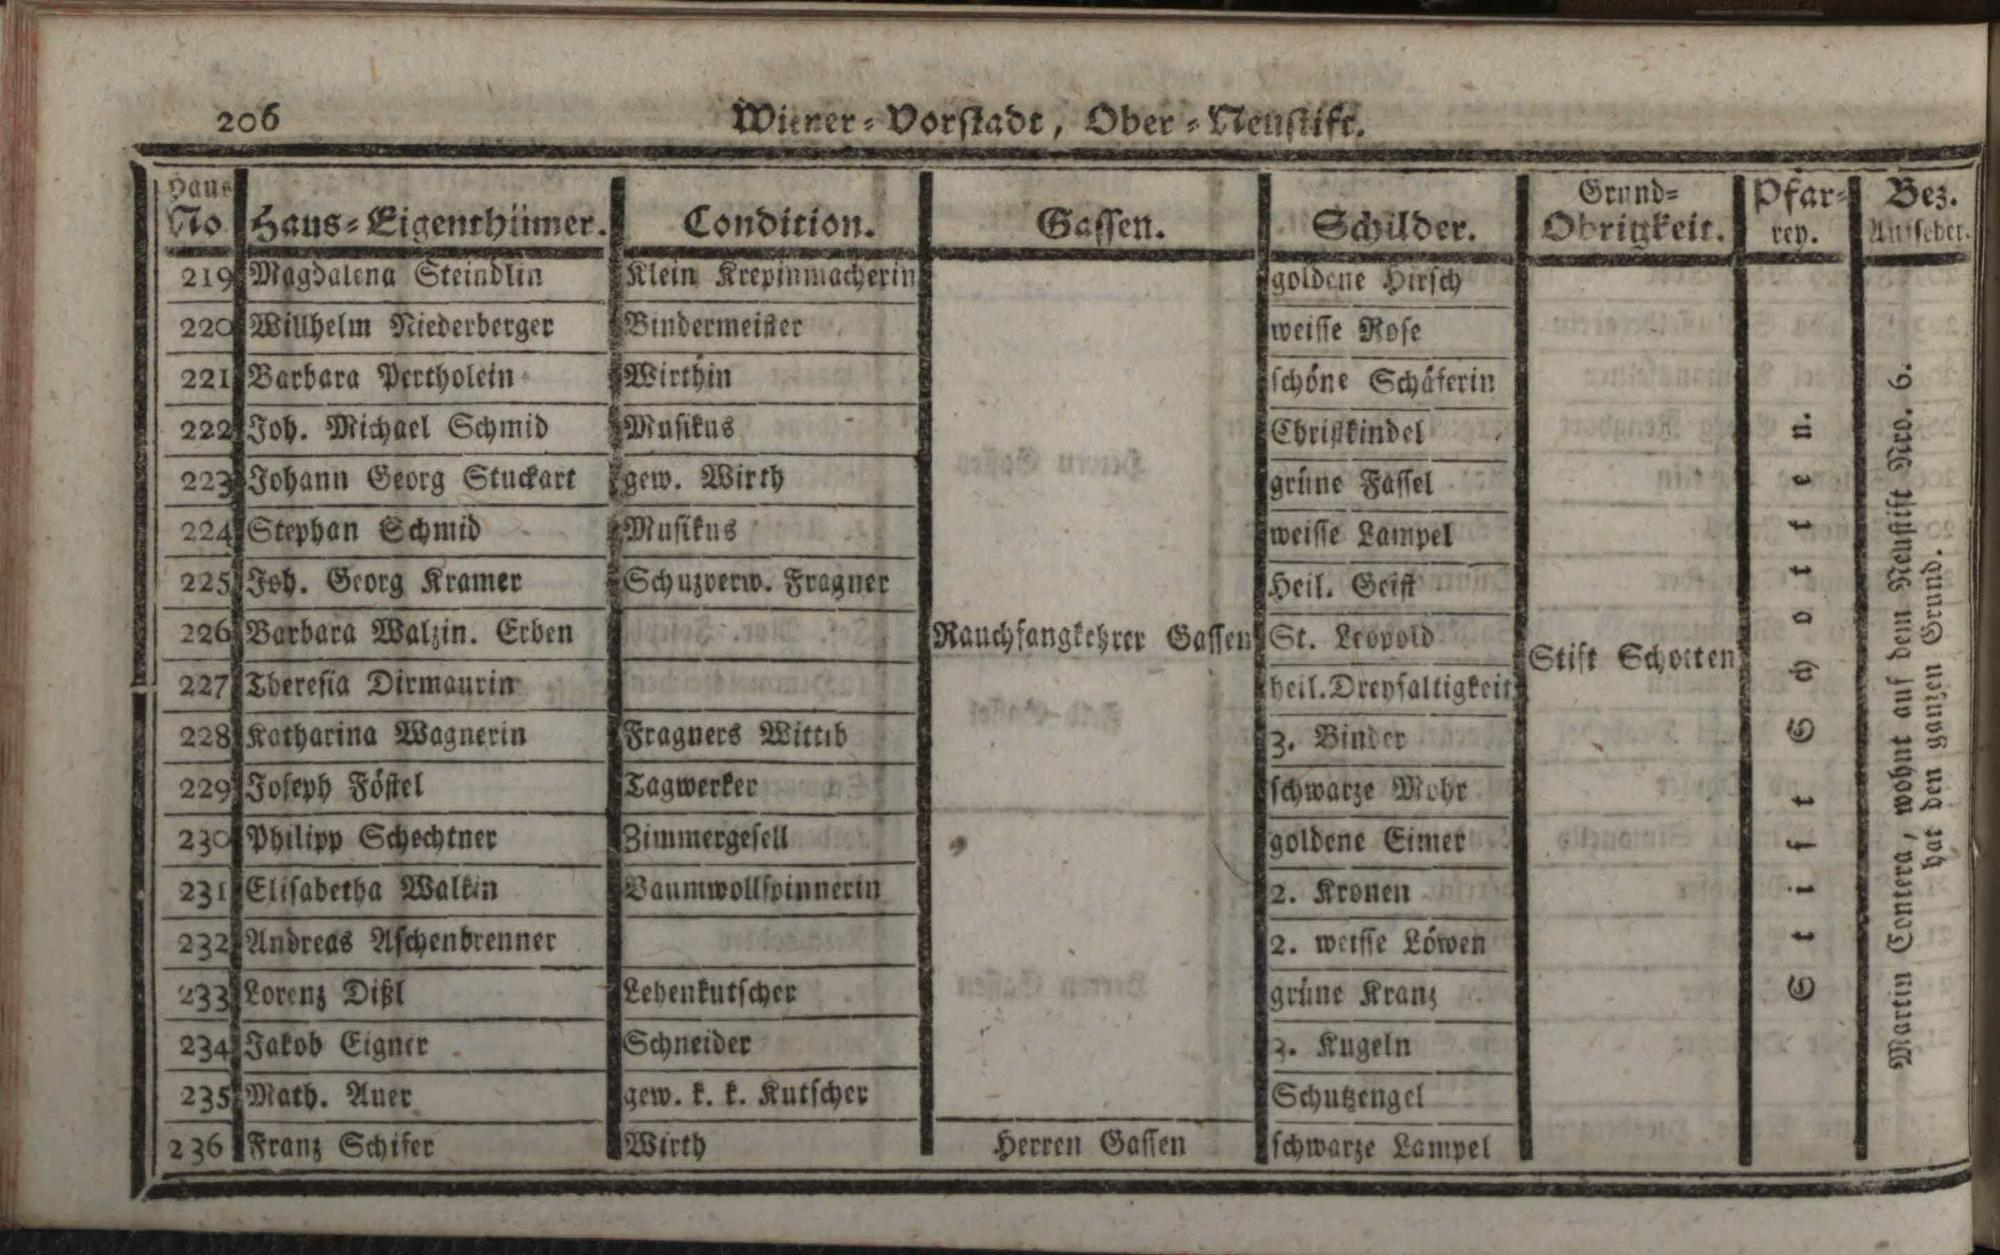 206 Wiener-Vorstadt, Ober-Neustift.
Haus No. Haus-Eigenthümer. Condition. Gassen. Schilder. Grund-Obrigkeit. Pfarrey. Bez. Aufseher.
219 Magdalena Steindlin Klein Krepinmacherin goldene Hirsch
220 Willhelm Niederberger Bindermeister weisse Rose
221 Barbara Pertholein Wirthin schöne Schäferin
222 Joh. Michael Schmid Musikus Christkindel
223 Johann Georg Stuckart gew. Wirth grüne Fässel
224 Stephan Schmid Musikus weisse Lampel
225 Joh. Georg Kramer Schuzverw. Fragner Heil. Geist
226 Barbara Walzin. Erben Rauchfangkehrer Gassen St. Leopold Stift Schotten
227 Theresia Dirmaurin heil. Dreyfaltigkeit
228 Katharina Wagnerin Fragners Wittib 3. Binder
229 Joseph Föstel Tagwerker schwarze Mohr
230 Philipp Schechtner Zimmergesell goldene Eimer
231 Elisabetha Walkin Baumwollspinnerin 2. Kronen
232 Andreas Aschenbrenner 2. weisse Löwen
233 Lorenz Dißl Lehenkutscher grüne Kranz
234 Jakob Eigner Schneider 3. Kugeln
235 Math. Auer gew. k. k. Kutscher Schutzengel
236 Franz Schifer Wirth Herren Gassen schwarze Lampel
Stift Schotten.
Martin Contera, wohnt auf dem Neustift Nro. 6.
hat den ganzen Grund.